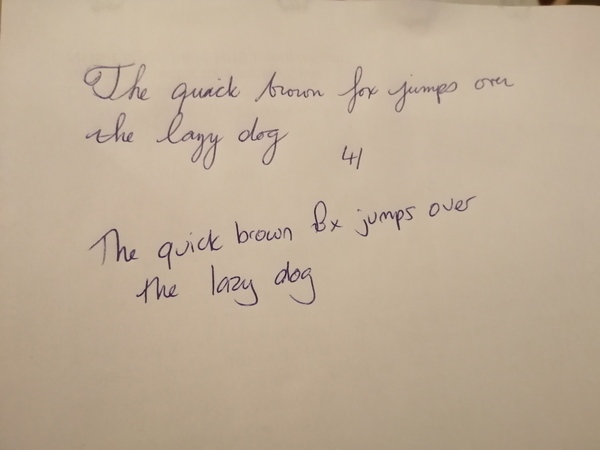 The quick brown fox jumps over
the lazy dog
41
The quick brown fox jumps over
the lazy dog